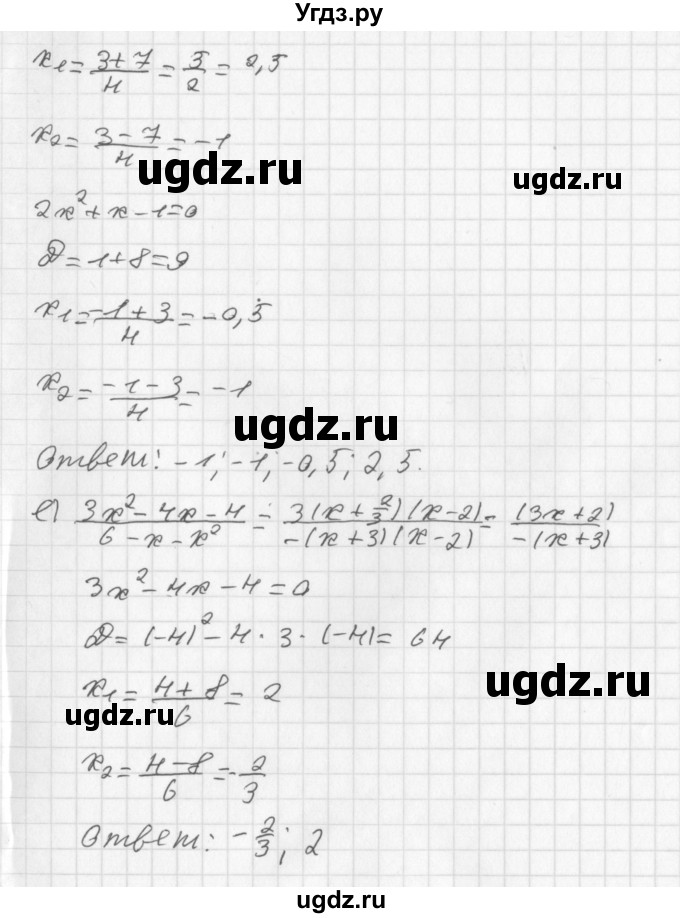 Угдз.ру
x₁ = (3+7)/4 = 5/2 = 2,5
x₂ = (3-7)/4 = -1
ugdz.ru
ugdz.ru
2x² + x - 1 = 0
D = 1 + 8 = 9
x₁ = (-1+3)/4 = -0,5
x₂ = (-1-3)/4 = -1
ugdz.ru
Ответ: -1; -1; -0,5; 2,5.
е) (3x² - 4x - 4)/(6 - x - x²) = (3(x + 2/3)(x-2))/(-(x+3)(x-2)) = (3x+2)/(-(x+3))
3x² - 4x - 4 = 0
D = (-4)² - 4 · 3 · (-4) = 64
x₁ = (4+8)/6 = 2
ugdz.ru
ugdz.ru
x₂ = (4-8)/6 = -2/3
Ответ: -2/3; 2
ugdz.ru